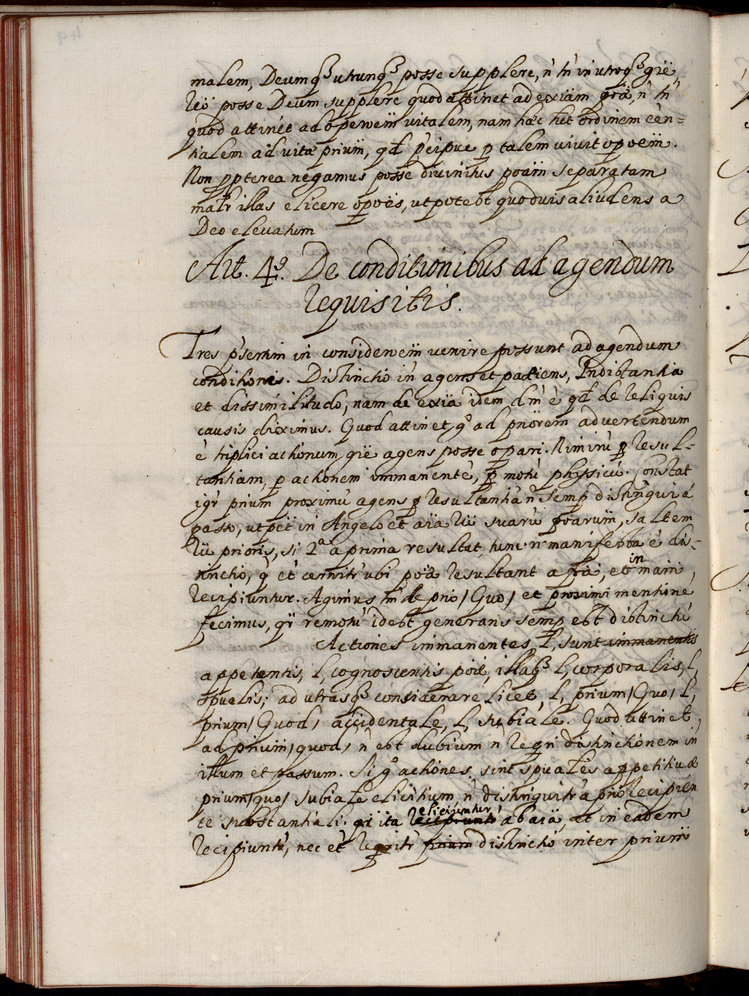 malem, Deumq; utrunq; posse supplere, ñ tñ in utroq; gñe
posse Deum supplere quod attinet ad exiam grã, ñ tñ
quod attinet ad operoem vitalem, nam hæc het ordinem een=
tialem ad vitæ prium, qd p̃cipue p talem vivit opoem.
Non ppterea negamus posse divinitus poam separatam
mali illas elicere opoes, ut potest quodvis aliud ens a
Deo elevatum
Art. 4.º De conditionibus ad agendum
requisitis.
Tres p̃sertim in consideroem venire possunt ad agendum
conditiones. Distinctio in agens et patiens, Indistantia
et dissimilitudo, nam de exia idem dm̃ ẽ qd de reliquis
causis diximus. Quod attinet gº ad priorem advertendum
ẽ triplici actionum gñe agens posse opari. Nimirũ p resul-
tantiam, p actionem immanentẽ, p motũ physicũ. Constat
igr prium proximũ agens p resultantiã ñ semp distingui á
passo, ut pet in Angelo et aĩa suarũ poarum, saltem
prioris, si 2ª a prima resultat tunc ñ manifesta ẽ dis-
tinctio, q et cernitr ubi poæ resultant a fra, et in mam
recipiuntur. Agimus tñ de prio, Quo, et proximi mentione
fecimus, qr remotũ idest generans semp est distinctũ
Actiones immanentes, sunt immanentis
appetentis, l, cognoscentis poæ, illæq; l, corporalis, l,
spualis, ad utrasq; considerare licet, l, prium, Quo, l,
prium, Quod, accidentale, l, subiale. Quod attinet
ad prium, quod, ñ est dubium ñ reqri distinctionem in
illum et passum. Si gº actiones sint spuales appetitivæ
prium, quo, subiale elicitium ñ distinguitr a prio recipien
te substantiali: qr ita recipiuntr eliciuntur ab aia, ut in eadem
recipiuntr, nec et reqritr prium distinctio inter prium